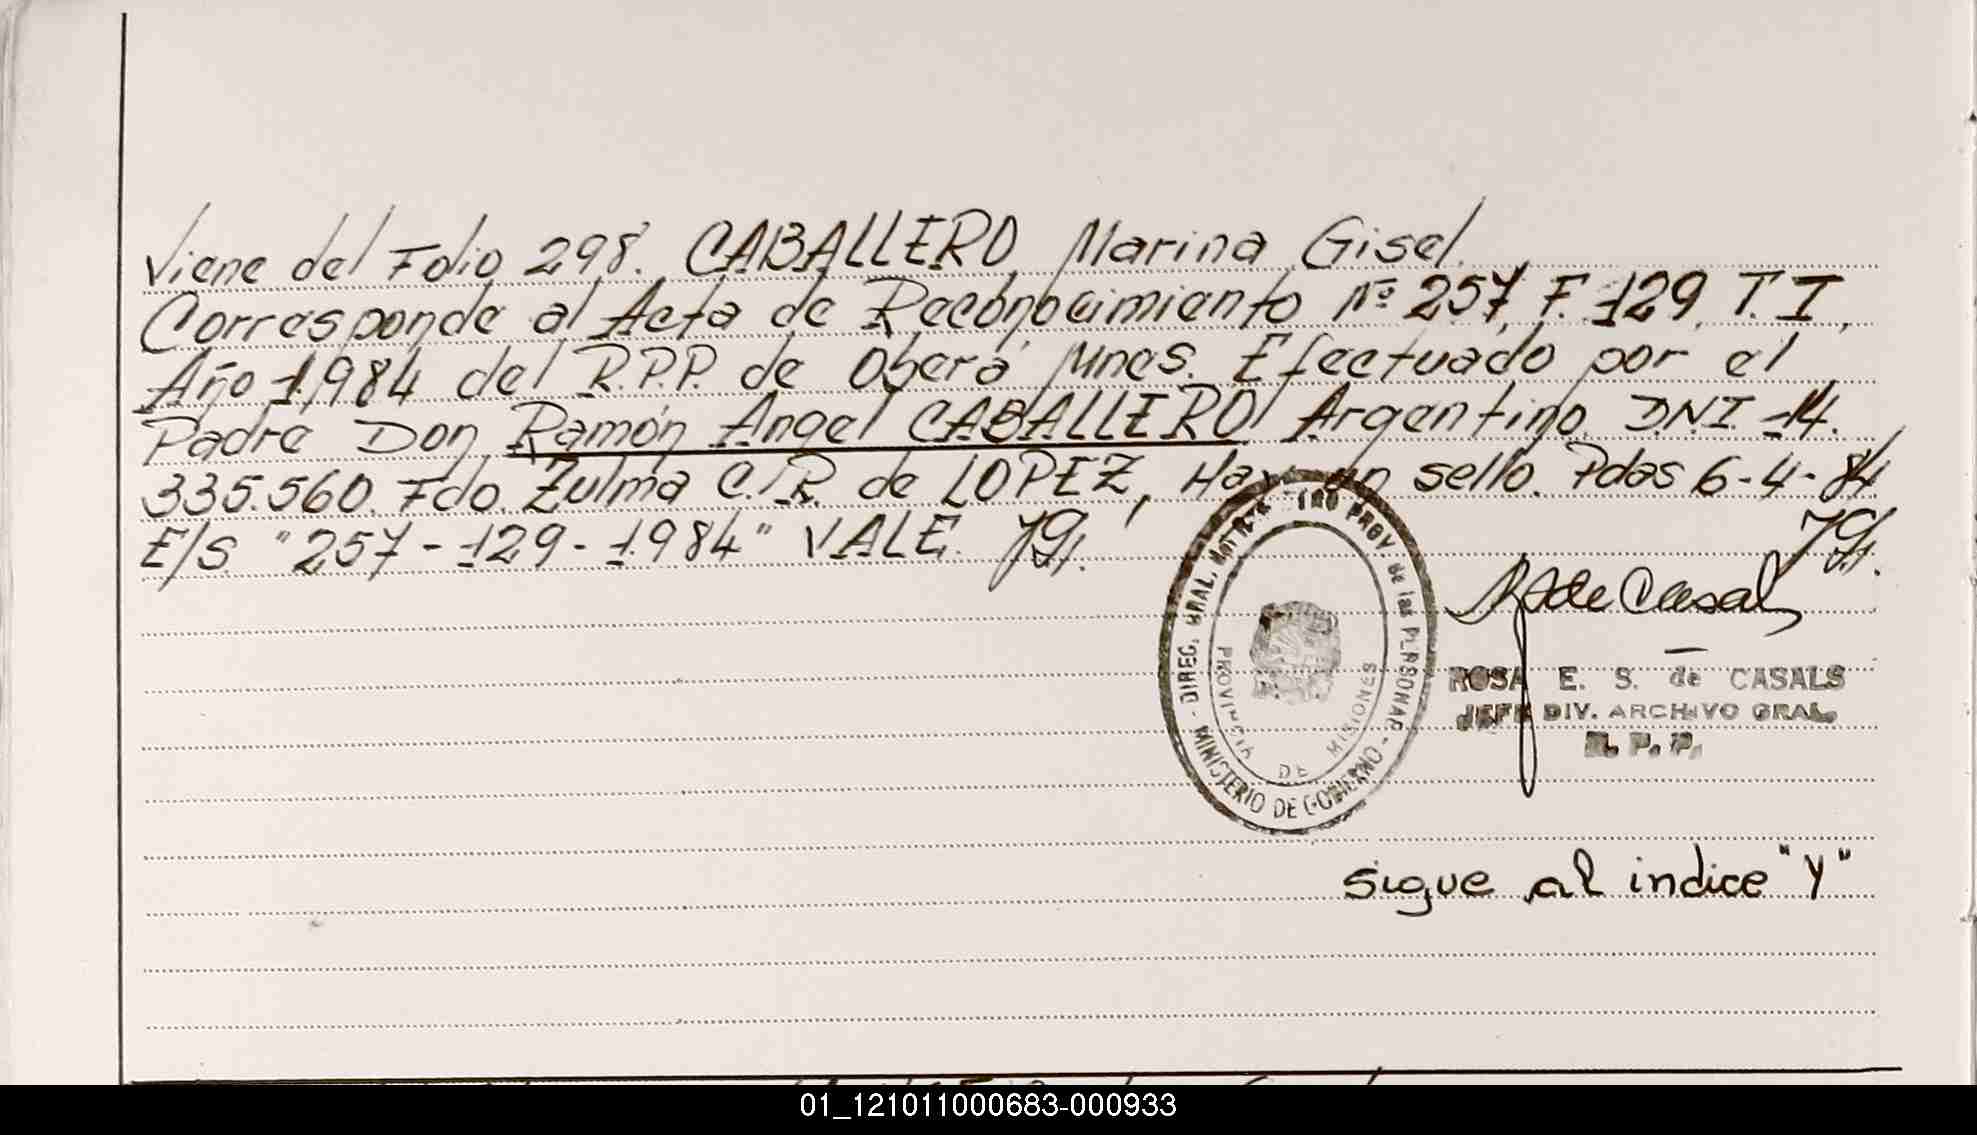 Viene del Folio 298. CABALLERO, Marina Gisel.
Corresponde al Acta de Reconocimiento Nº 257, F. 129, T. I,
Año 1984 del R.P.P. de Oberá Mnes. Efectuado por el
Padre Don Ramón Angel CABALLERO Argentino D.N.I. 14.
335.560. Fdo. Zulma C. R. de LOPEZ, Hay un sello. Pdas 6-4-84
E/S. "257-129-1984" VALE.
DIREC. GRAL. del PROV de las PERSONAS
PROVINCIA DE MISIONES
- MINISTERIO DE GOBIERNO -
R S de Casals
ROSA E. S. de CASALS
JEFE DIV. ARCHIVO GRAL.
R. P. P.
sigue al indice "Y"
01_121011000683-000933